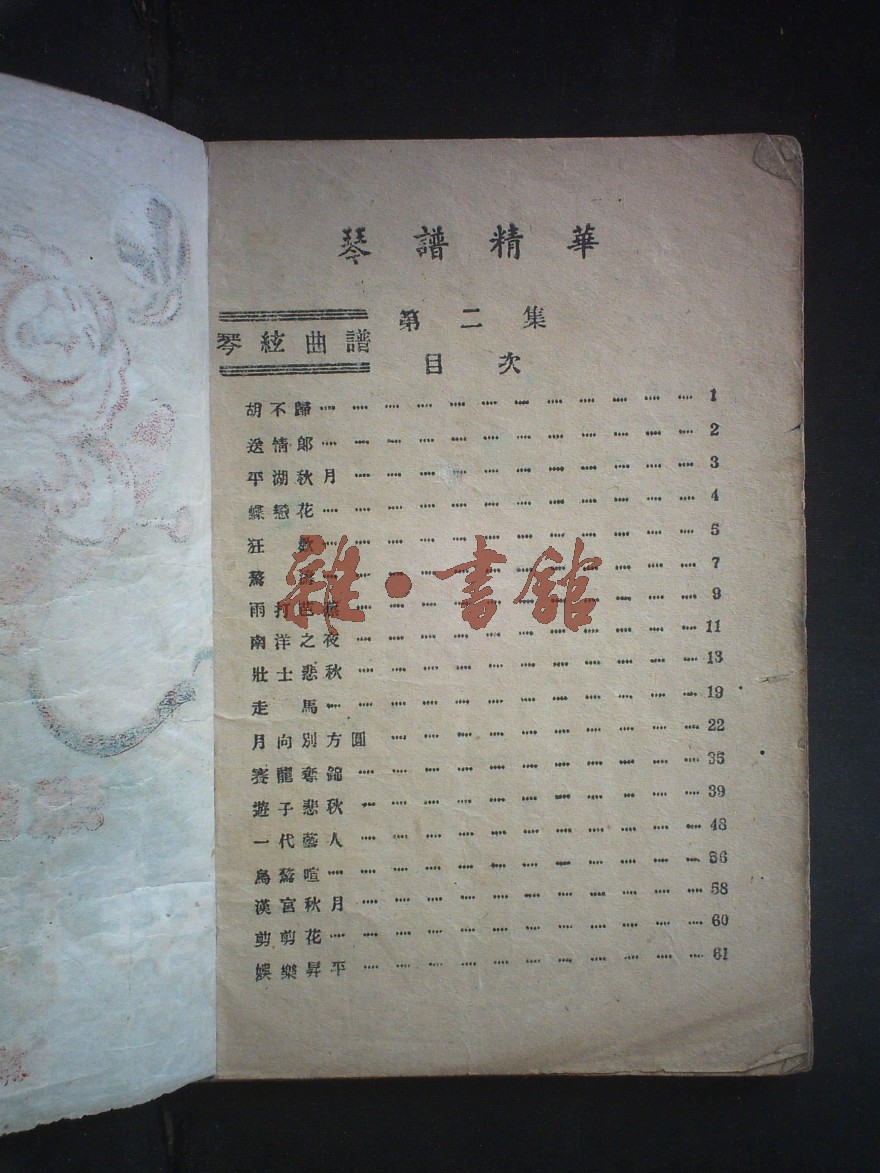 琴譜精華
第二集
琴絃曲譜
目次
胡不歸 1
送情郎 2
平湖秋月 3
蝶戀花 4
狂歡 5
驚濤 7
雨打芭蕉 9
南洋之夜 11
壯士悲秋 13
走馬 19
月向別方圓 22
賽龍奪錦 35
遊子悲秋 39
一代藝人 48
烏驚喧 56
漢宮秋月 58
剪剪花 60
娛樂昇平 61
雜·書館